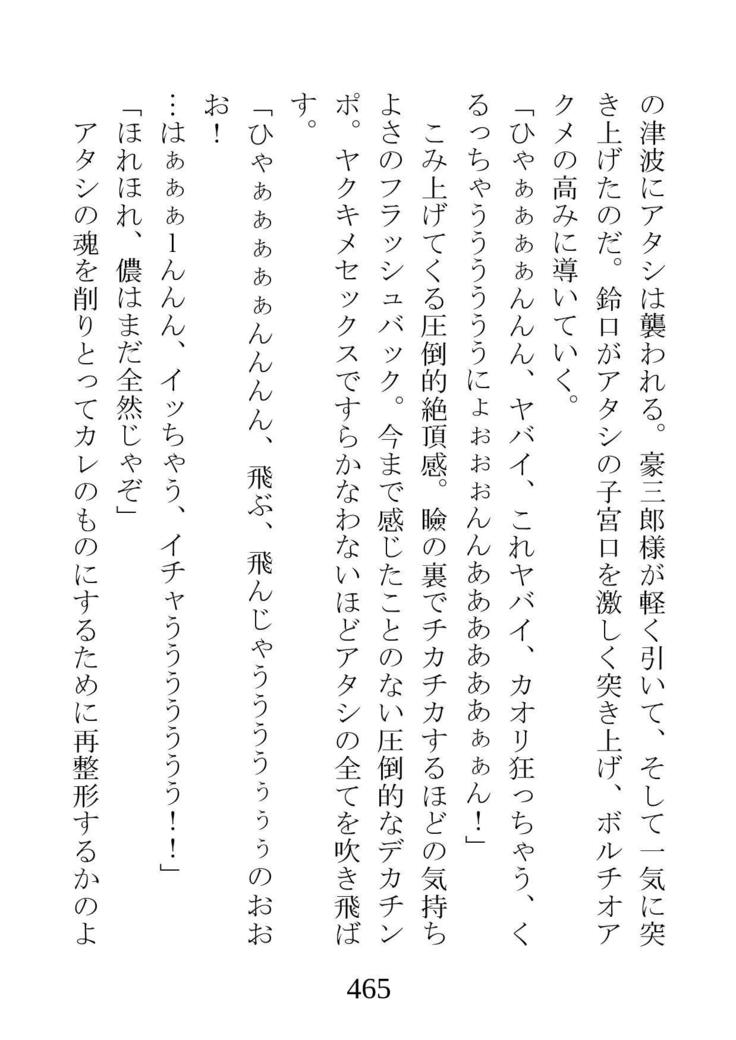 の津波にアタシは襲われる。豪三郎様が軽く引いて、そして一気に突
き上げたのだ。鈴口がアタシの子宮口を激しく突き上げ、ボルチオア
クメの高みに導いていく。
「ひゃぁぁぁぁんんん、ヤバイ、これヤバイ、カオリ狂っちゃう、く
るっちゃうううううにょぉぉぉんんああああああぁぁん！」
こみ上げてくる圧倒的絶頂感。瞼の裏でチカチカするほどの気持ち
よさのフラッシュバック。今まで感じたことのない圧倒的なデカチン
ポ。ヤクキメセックスですらかなわないほどアタシの全てを吹き飛ば
す。
「ひゃぁぁぁぁぁんんんん、飛ぶ、飛んじゃうううううぅぅのおお
お！
…はぁぁぁlんんん、イッちゃう、イチャううううううう！！」
「ほれほれ、儂はまだ全然じゃぞ」
アタシの魂を削りとってカレのものにするために再整形するかのよ
465